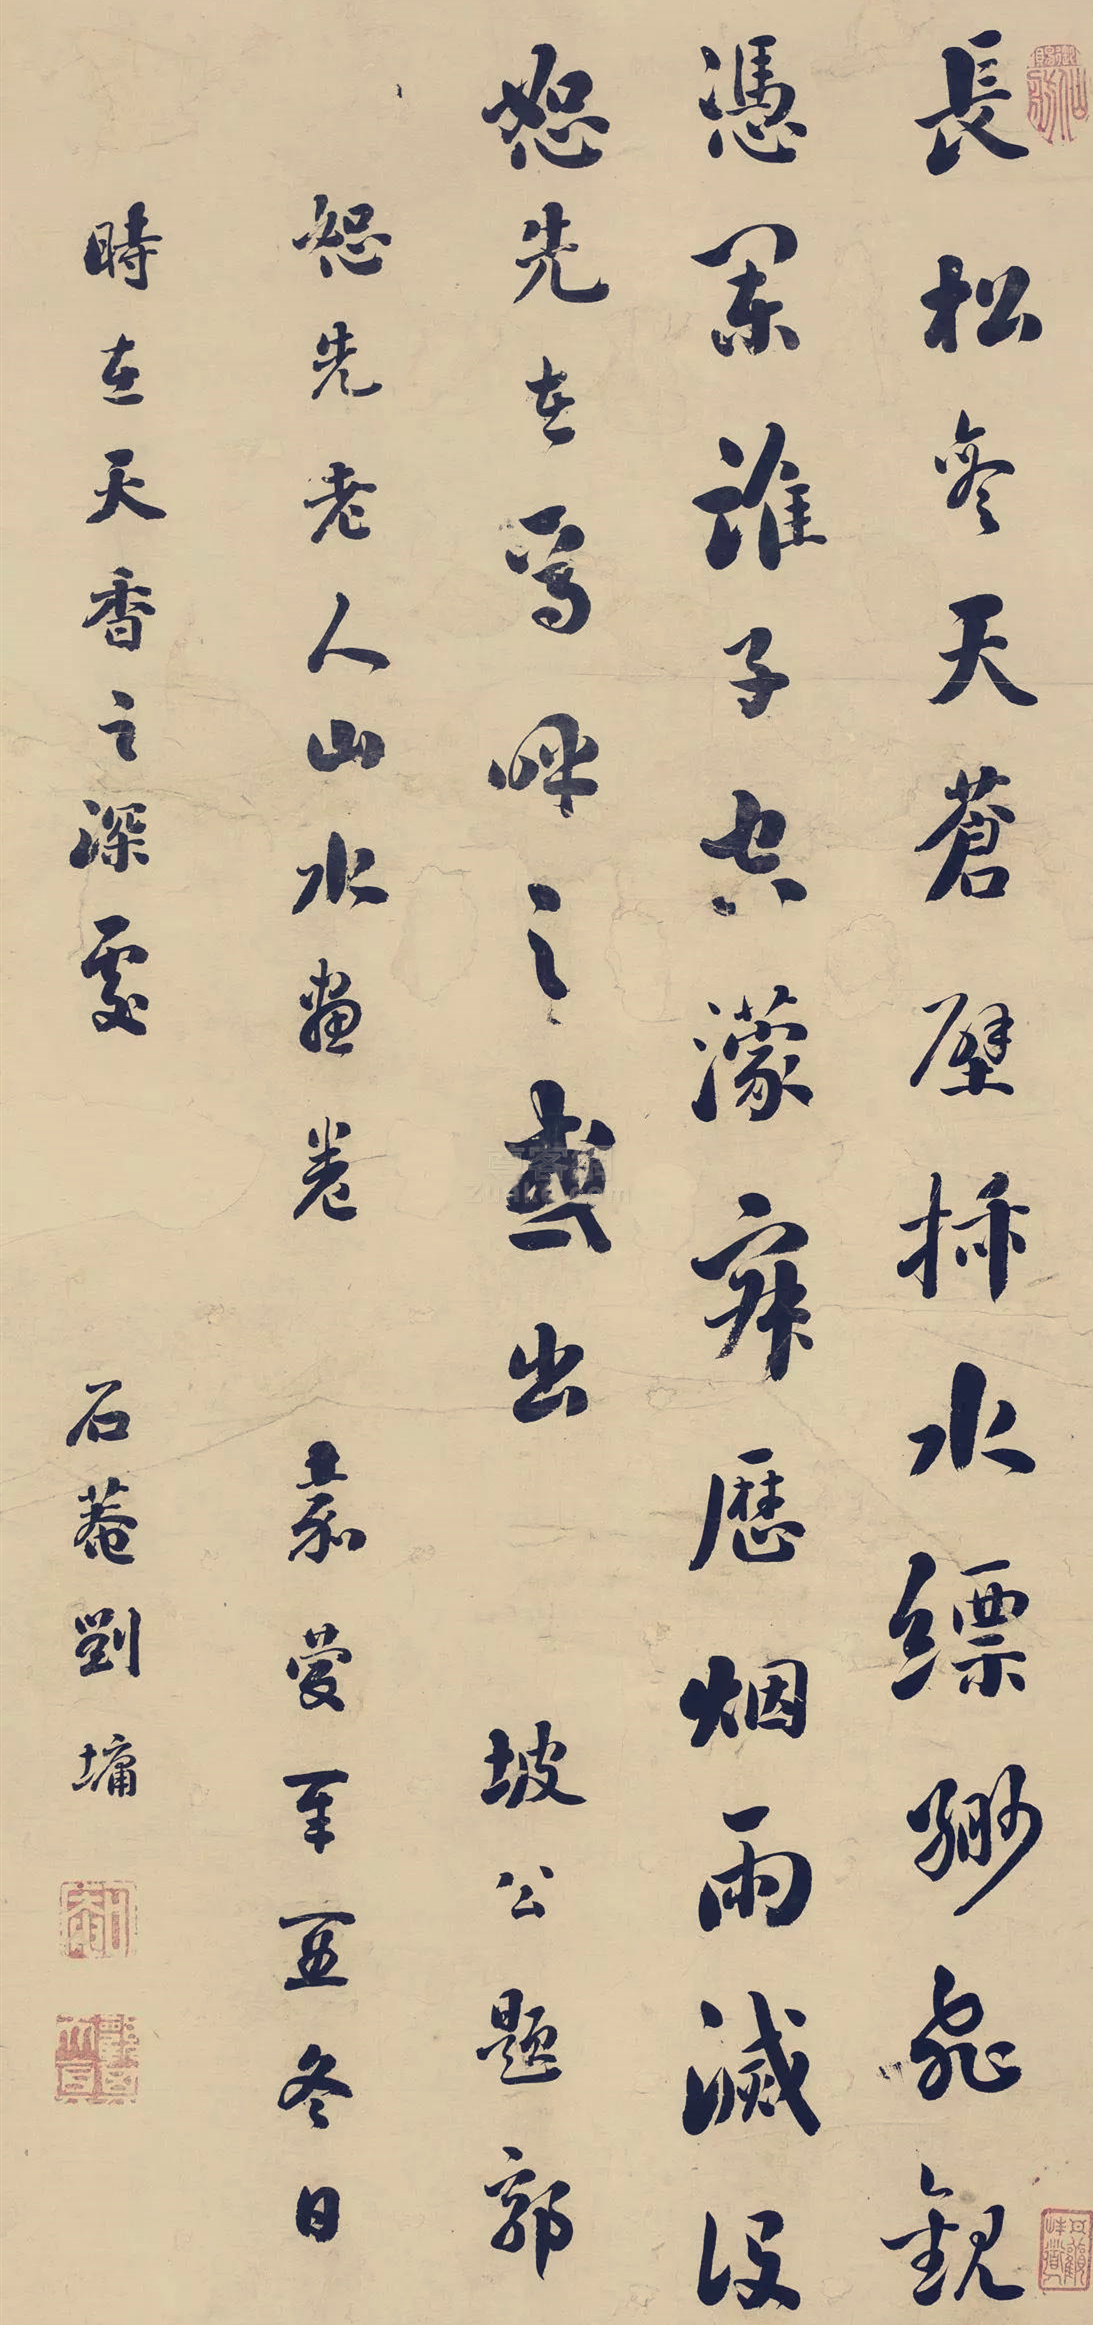 長松參天蒼壁插水縹緲飛觀
憑闌誰子空濛寂歷烟雨滅沒
恕先在焉呼之或出 坡公題郭
恕先老人山水畫卷 嘉慶年冬日
時在天香之深處 石菴劉墉